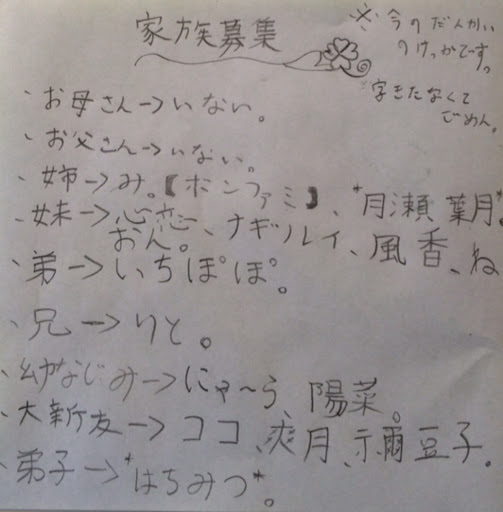 家族募集
※今のだんかい
のけっかです。
字きたなくて
ごめん。
・お母さん→いない。
・お父さん→いない。
・姉→み。【ポンファミ】、*月瀬 葉月*。
・妹→心恋、ナギ、ルイ、風香、ね
おん。
・弟→いちぽぽ。
・兄→りと。
・幼なじみ→にゃ～ら、陽菜。
・大新友→ココ、爽月、禰豆子。
・弟子→*はちみつ*。